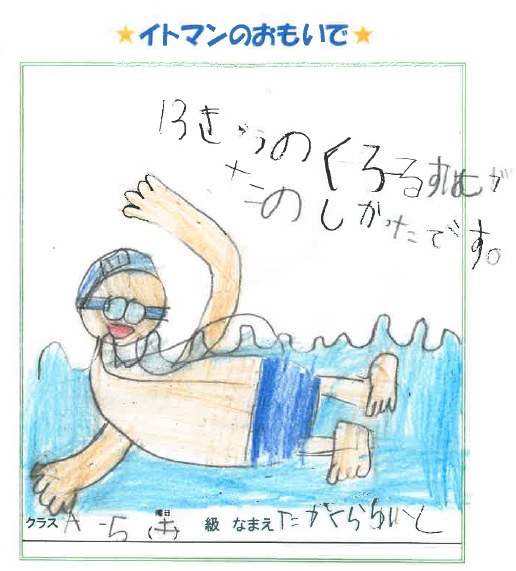 ★イトマンのおもいで★
13きゅうのくろーるすなむが
たのしかったです。
クラス A-5 曜日(土) 級 なまえ たかくらちいと